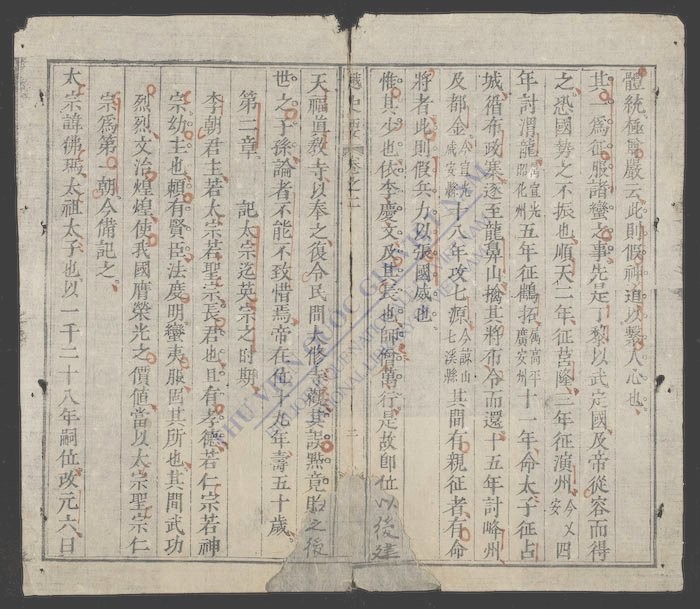 體統極尊嚴云此則假神道以繫人心也
其一爲部服諸蠻之事先是丁黎以武定國及帝從容而得
之恐國勢之不振也順天二年征莒隆三年征演州今乂安四
年討渭龍屬宣光昭化州五年征鶴拓屬高平廣安州十一年命太子征占
城循布政寨遂至龍鼻山擒其將布令而還十五年討峰州
及都金今宣光咸安縣十八年攻七源今諒山七溪縣其間有親征者有命
將者此則假兵力以張國威也
惟其少也依李慶文及其長也師僧萬行是故卽位以後建
越史要 卷之二
二
天福眞教寺以奉之後令民間大修寺觀其誤點竟貽之後
世之子孫論者不能不致惜焉帝在位十九年壽五十歲
第二章 記太宗迄英宗之時期
李朝君主若太宗若聖宗長君也且有孝德若仁宗若神
宗幼主也頼有賢臣法度明蠻夷服固其所也其間武功
烈烈文治煌煌使我國膺榮光之價値當以太宗聖宗仁
宗爲第一朝今備記之
太宗諱佛瑪太祖太子也以一千二十八年嗣位改元六曰
THƯ VIỆN QUỐC GIA VIỆT NAM
BIBLIOTHÈQUE NATIONALE DU VIETNAM
NATIONAL LIBRARY OF VIETNAM